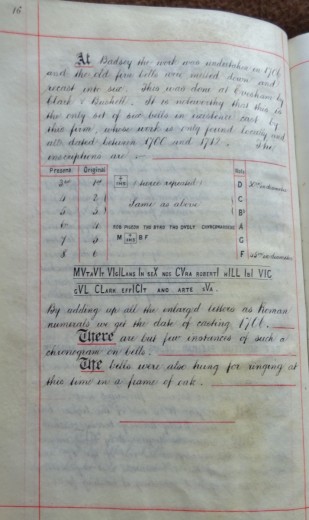 16
At Badsey the work was undertaken in 1706
and the old five bells were carried down and
recast into six. This was done at Evesham by
Clark & Bushell. It is noteworthy that this is
the only set of six bells in existence cast by
this firm, whose work is only found locally and
all dated between 1700 and 1712. The
inscriptions are :-
Present Original Note
1st (thrice repeated) D
4 2 C
5 3 same as above B♭
A
7 5 M B F G
8 6 F
MVTAVIT VIGILANS IN SEX NOS CVRA ROBERTI HILL VIC
CVL CLARK EFFICIT AND ARTE SVA.
By adding up all the enlarged letters as Roman
numerals we get the date of casting 1706.
There are but few instances of such a
chronogram on bells.
The bells were also hung for ringing at
this time in a frame of oak.